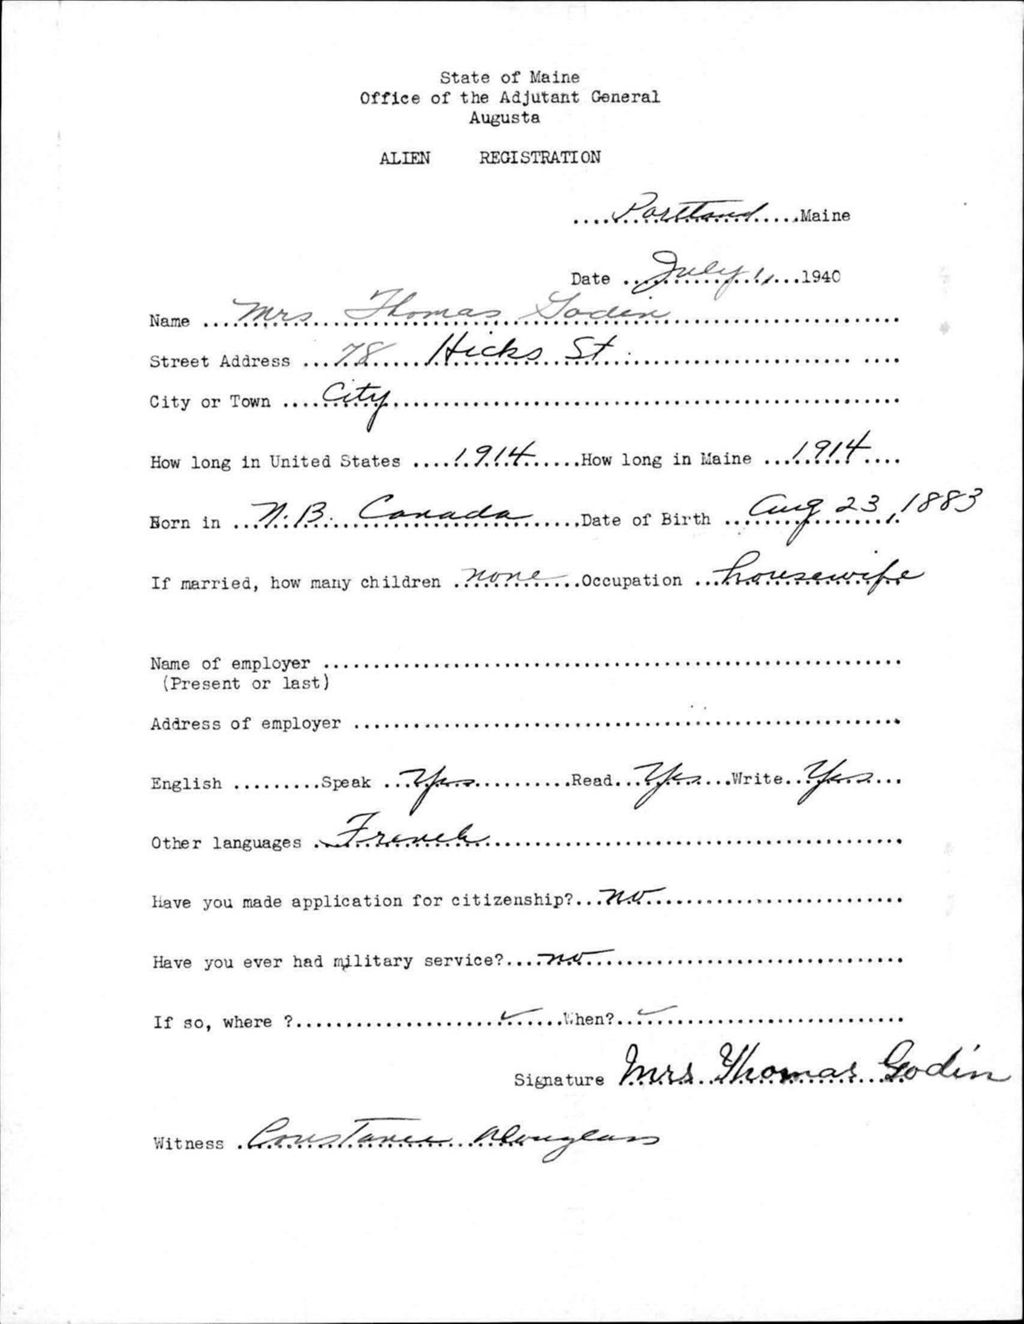 State of Maine
Office of the Adjutant General
Augusta
ALIEN REGISTRATION
....Portland.....Maine
Date ...July 1,...1940
Name ....Mrs Thomas Godin....
Street Address ....78 Hicks St....
City or Town ....City....
How long in United States ....1914......How long in Maine ...1914....
Born in ...N.B. Canada......Date of Birth ...Aug 23, 1883
If married, how many children .none....Occupation ...housewife
Name of employer ....
(Present or last)
Address of employer ....
English .........Speak ...Yes..........Read...Yes...Write..Yes...
Other languages ..French....
Have you made application for citizenship?...no....
Have you ever had military service?....no....
If so, where ?....✓......When?...✓....
Signature Mrs. Thomas Godin
Witness .Constance Douglass